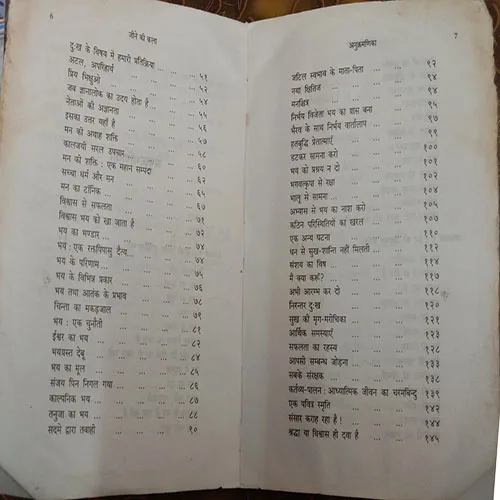 ६
जीने की कला
दुःख के विषय में हमारी प्रतिक्रिया ... ... ५१
अटल, अपरिहार्य ... ... ... ५२
प्रिय भिक्षुओ ... ... ... ५४
जब ज्ञानालोक का उदय होता है ... ... ५४
नेताओं की अज्ञानता ... ... ... ५५
इसका उत्तर यहाँ है ... ... ... ५६
मन की अथाह शक्ति ... ... ... ५७
कालजयी सरल उपचार ... ... ... ५८
मन की शक्ति : एक महान सम्पदा ... ... ६०
सच्चा धर्म और मन ... ... ... ६२
मन का टॉनिक ... ... ... ६५
विश्वास से सफलता ... ... ... ६७
विश्वास भय को खा जाता है ... ... ७१
भय का भण्डार ... ... ... ७२
भय : एक रक्तपिपासु दैत्य ... ... ७४
भय के परिणाम ... ... ... ७४
भय के विभिन्न प्रकार ... ... ७५
भय तथा आतंक के प्रभाव ... ... ७७
चिन्ता का मकड़जाल ... ... ७८
भय : एक चुनौती ... ... ... ७९
ईश्वर का भय ... ... ... ८१
भयग्रस्त देबू ... ... ... ८२
भय का मूल ... ... ... ८४
संजय पिन निगल गया ... ... ... ८५
काल्पनिक भय ... ... ... ८६
तनुजा का भय ... ... ... ८७
सदमे द्वारा तबाही ... ... ... ८८
९०
अनुक्रमणिका
७
जटिल स्वभाव के माता-पिता ... ... ९२
नया क्षितिज ... ... ... ९४
मनःक्षेत्र ... ... ... ९५
निर्भय विजेता भय का ग्रास बना ... ... ९५
भैरव के साथ निर्भय वार्तालाप ... ... ९७
हतबुद्धि प्रेतात्माएँ ... ... ९९
डटकर सामना करो ... ... ९९
भय को प्रश्रय न दो ... ... १०१
भगवत्कृपा से रक्षा ... ... १०२
भालू से सामना ... ... ... १०४
अभ्यास से भय का नाश करो ... ... १०५
कठिन परिस्थितियों का खरल ... ... १०७
एक अन्य घटना ... ... ११०
धन से सुख-शान्ति नहीं मिलती ... ... ११२
संशय का विष ... ... ११४
मैं क्या करूँ? ... ... ११६
अभी आरम्भ कर दो ... ... ११७
निरन्तर दुःख ... ... १२०
सुख की मृग-मरीचिका ... ... १२१
आर्थिक समस्याएँ ... ... १२६
सफलता का रहस्य ... ... १२८
आपसी सम्बन्ध जोड़ना ... ... १३३
सबके संरक्षक ... ... १३८
कर्तव्य-पालन : आध्यात्मिक जीवन का चरमबिन्दु १३९
एक पवित्र स्मृति ... ... १४४
संसार कराह रहा है ! ... ... १४४
श्रद्धा या विश्वास ही दवा है ... ... १४५